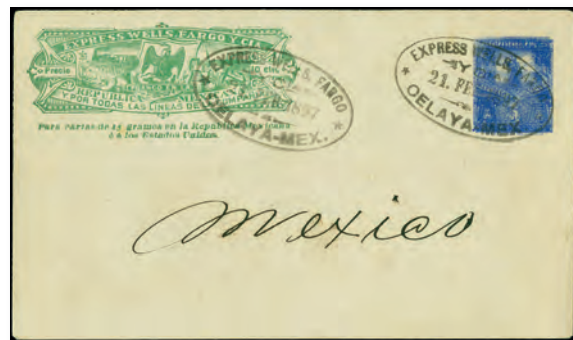 EXPRESS WELLS FARGO Y CIA.
Precio
10 cts.
REPUBLICA MEXICANA
Y POR TODAS LAS LINEAS DE
Para cartas de 15 gramos en la Republica Mexicana
ó a los Estados Unidos.
EXPRESS WELLS, FARGO
1897
CELAYA-MEX.
EXPRESS WELLS
21. FE
CELAYA-MEX
Mexico